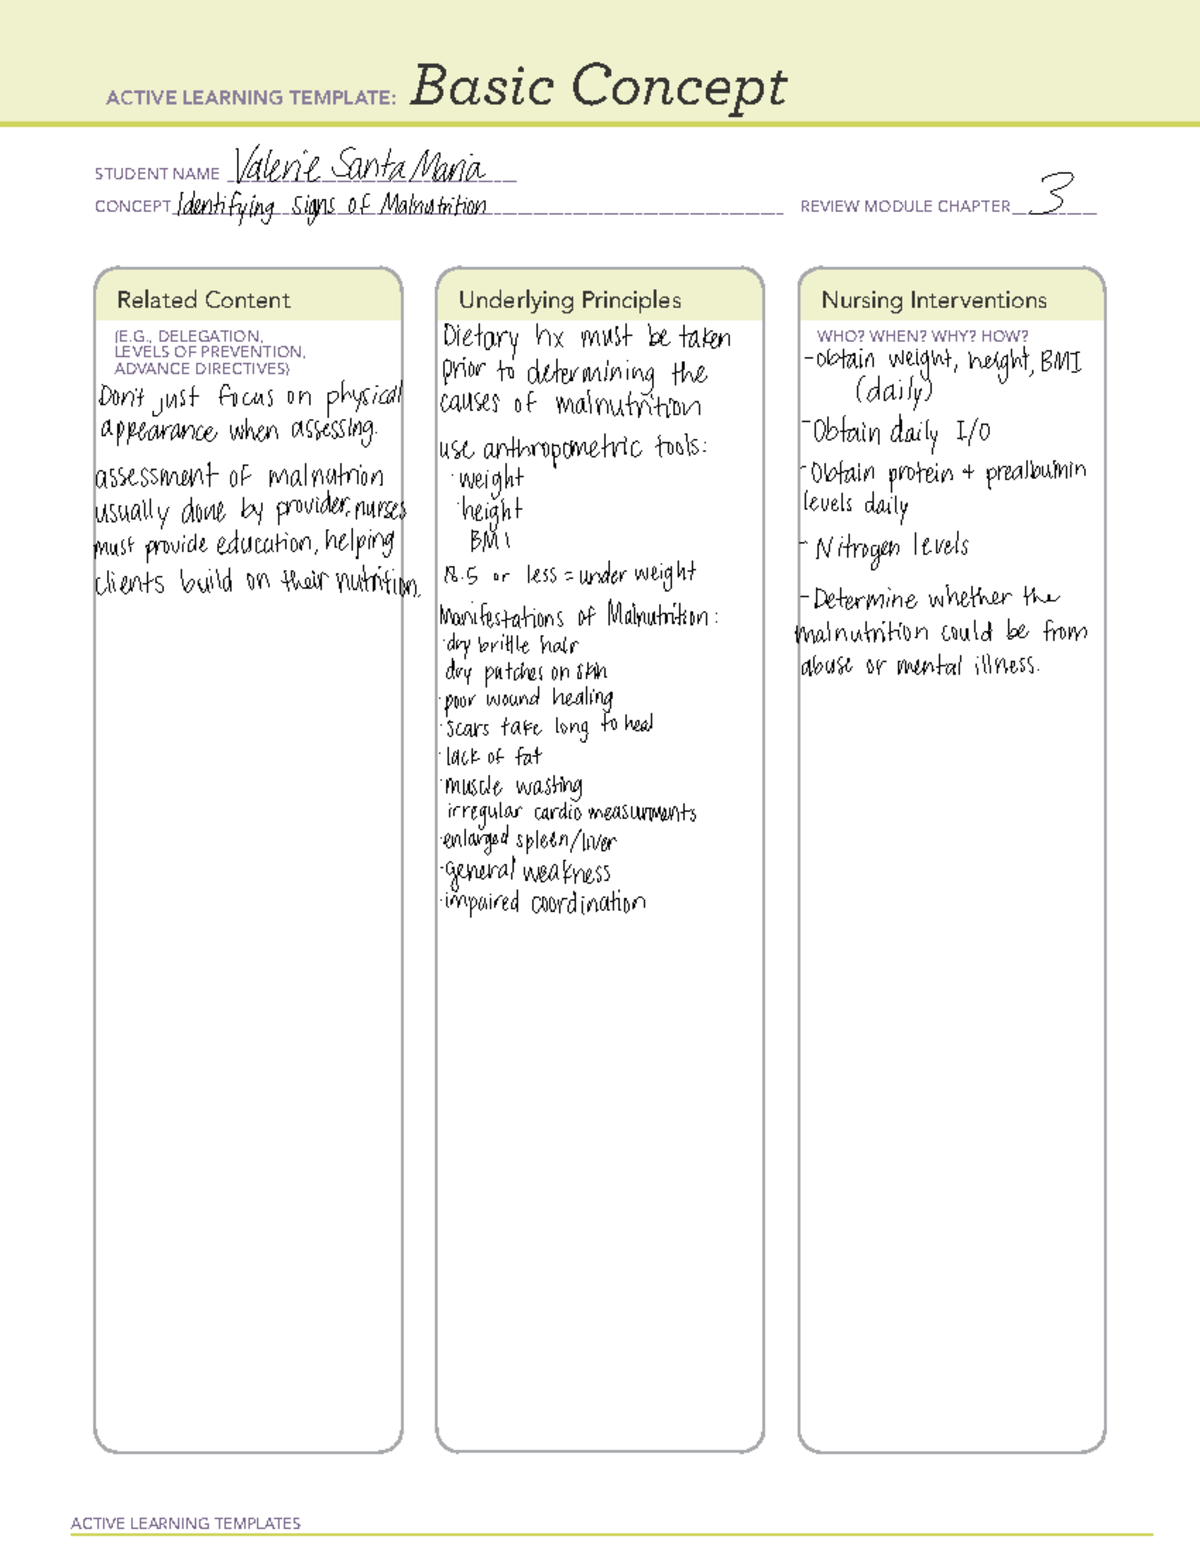 ACTIVE LEARNING TEMPLATE: Basic Concept
STUDENT NAME Valerie Santa Maria
CONCEPT Identifying Signs of Malnutrition
REVIEW MODULE CHAPTER 3
Related Content
(E.G., DELEGATION,
LEVELS OF PREVENTION,
ADVANCE DIRECTIVES)
Don't just focus on physical
appearance when assessing.
assessment of malnutrion
usually done by provider, nurses
must provide education, helping
clients build on their nutrition.
Underlying Principles
Dietary hx must be taken
prior to determining the
causes of malnutrition
use anthropometric tools:
· weight
· height
BMI
18.5 or less = under weight
Manifestations of Malnutrition:
· dry brittle hair
dry patches on skin
· poor wound healing
· scars take long to heal
· lack of fat
· muscle wasting
irregular cardio measurments
· enlarged spleen/liver
· general weakness
· impaired coordination
Nursing Interventions
WHO? WHEN? WHY? HOW?
- obtain weight, height, BMI
(daily)
- Obtain daily I/O
- Obtain protein + prealbumin
levels daily
- Nitrogen levels
- Determine whether the
malnutrition could be from
abuse or mental illness.
ACTIVE LEARNING TEMPLATES